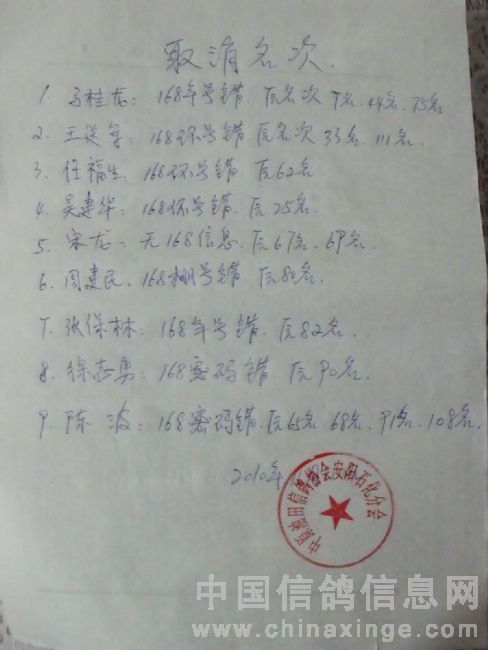 取消名次.
1. 马桂龙: 168年号错. 原名次 7名. 44名. 75名
2. 王延军: 168环号错 原名次 33名. 111名.
3. 任福生: 168环号错. 原62名.
4. 吴建华: 168环号错. 原25名.
5. 宋龙: 无168信息. 原67名. 69名.
6. 周建民. 168棚号错. 原名.
7. 张保林: 168年号错. 原82名.
8. 徐志勇: 168密码错. 原90名.
9. 陈波: 168密码错. 原65名. 68名. 91名. 108名.
2010年
中原油田信鸽协会安阳石化分会
中国信鸽信息网
www.chinaxinge.com